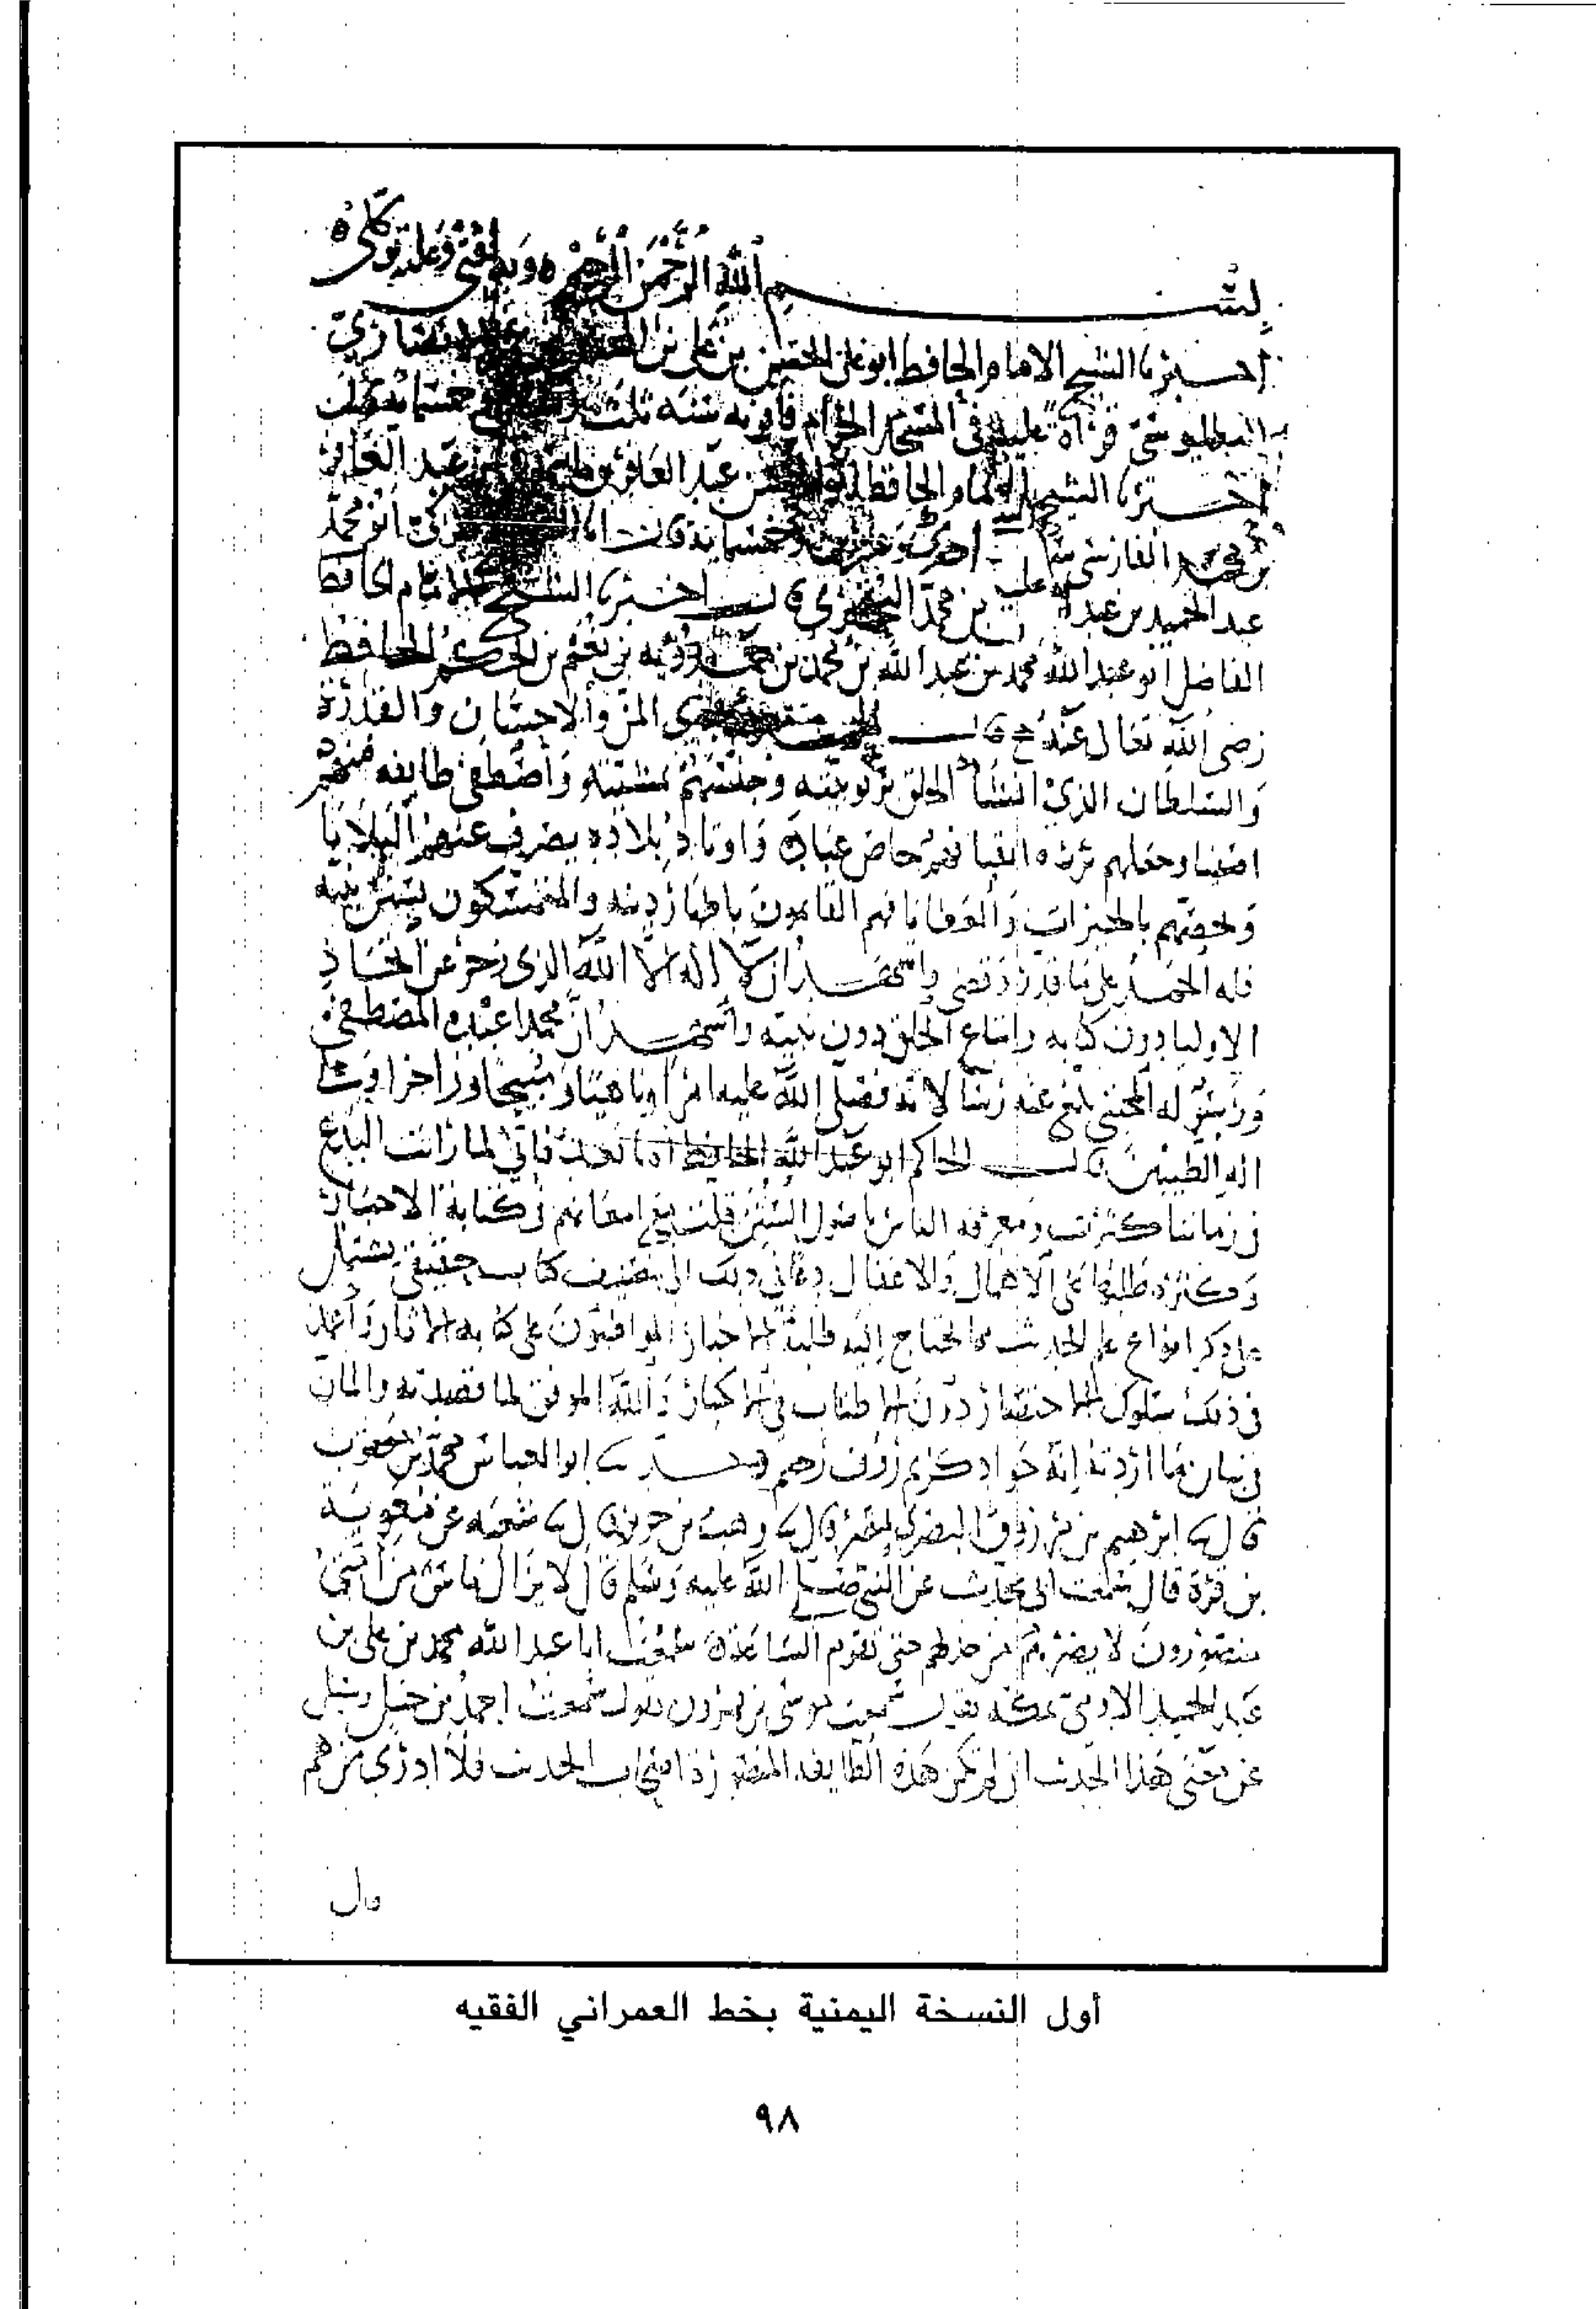 بسم الله الرحمن الرحيم وبه ثقتي وعليه توكلي
اخبرنا الشيخ الامام الحافظ ابو علي الحسين بن علي بن الانصاري
البطليوسي قراة عليه في المسجد الحرام قال سنه ثلث خمسمائة قال
اخبرنا الشيخ الامام الحافظ ابو الحسن عبد الغافر بن عبد الغافر
بن محمد الفارسي سنة احدى وعشرين وخمسمائة قال انا ابو محمد
عبد الحميد بن عبد الله بن محمد قال اخبرنا الشيخ الامام الحافظ
الفاضل ابو عبد الله محمد بن عبد الله بن محمد بن حمدويه بن نعيم بن الحكم الحافظ
رضي الله تعالى عنه قال الحمد لله ذي المن والاحسان والقدرة
والسلطان الذي انشأ الخلق بربوبيته وجنسهم بمشيئته واصطفى طايفه منهم
اصفيا وجعلهم بررة اتقيا فهم خاص عباده واوتاد بلاده يصرف عنهم البلايا
ويخصهم بالخيرات والعطايا فهم القايمون باظهار دينه والمتمسكون بسنن نبيه
فله الحمد على ما قدر وقضى واشهد ان لا اله الا الله الذي زجر عن اتخاذ
الاوليا دون كتابه واتباع الخلق دون نبيه واشهد ان محمدا عبده المصطفى
ورسوله المجتبى بلغ عنه رسالاته فصلى الله عليه امرا وناهيا ومبيحا وزاجرا وعلى
اله الطيبين قال الحاكم ابو عبد الله الحافظ اما بعد فاني لما رايت البدع
في زماننا كثرت ومعرفة الناس باصول السنن قلت مع امعانهم في كتابة الاخبار
وكثرة طلبها على الاهمال والاغفال دعاني ذلك الى تصنيف كتاب خفيف يشتمل
على ذكر انواع علم الحديث مما يحتاج اليه طلبة الاخبار المواظبون على كتابة الاثار واعتمد
في ذلك سلوك الاختصار دون الاطناب في الاكثار والله الموفق لما قصدته والمان
في بيان ما اردته انه جواد كريم روف رحيم حدثنا ابو العباس محمد بن يعقوب
قال نا ابرهيم بن مرزوق البصري بمصر قال نا وهب بن جرير قال نا شعبه عن معوية
بن قرة قال سمعت ابي يحدث عن النبي صلى الله عليه وسلم قال لا يزال ناس من امتي
منصورون لا يضرهم من خذلهم حتى تقوم الساعة سمعت ابا عبد الله محمد بن علي بن
عبد الحميد الادمي بمكه يقول سمعت موسى بن هرون يقول سمعت احمد بن حنبل وسيل
عن معنى هذا الحديث ان لم تكن هذه الطايفه المنصورة اصحاب الحديث فلا ادري من هم
قال
أول النسخة اليمنية بخط العمراني الفقيه
٩٨